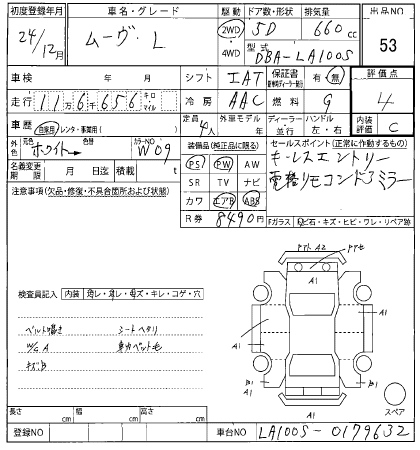 初度登録年月 車名・グレード 駆動 ドア数・形状 排気量 出品NO
24/12月 ムーヴ・L 2WD 4WD 5D 660cc 53
型式 DBA-LA100S
車検 年 月 シフト IAT 保証書 有・無 評価点
走行 11万6千656 キロ マイル 冷房 AAC 燃料 G 4
車歴 自家用・レンタ・事業用( ) 定員 4人 外車モデル 年 ディーラー・並行 ハンドル 左・右 内装評価 C
外色 元色 ホワイト 色替 カラーNO W09 装備品(純正品に限る) セールスポイント(正常に作動するもの)
名義変更期限 月 日迄 積載 t PS PW AW キーレスエントリー
注意事項(欠品・修復・不具合箇所および状態) SR TV ナビ 電格リモコンドアミラー
カワ エアB ABS
R券 8490円 Fガラス 飛石・キズ・ヒビ・ワレ・リペア跡
検査員記入 内装 汚レ・傷レ・毋ズ・キレ・コゲ・穴
ベルト鳴き シートヘタリ
W/G A
キズB
A2
A1
A1
A1
A1
B1
B1
A1
スペア
長さ cm 幅 cm 高さ cm
登録NO 車台NO LA100S-0179632